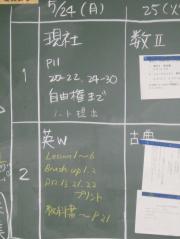 5/24(月)
25(火
現社
数Ⅱ
1
P11
20-22, 24-30
自由権まで
ノート提出
英W
古典
2
Lesson 1~6
Brush up 1.2
プリント
教科書~P21